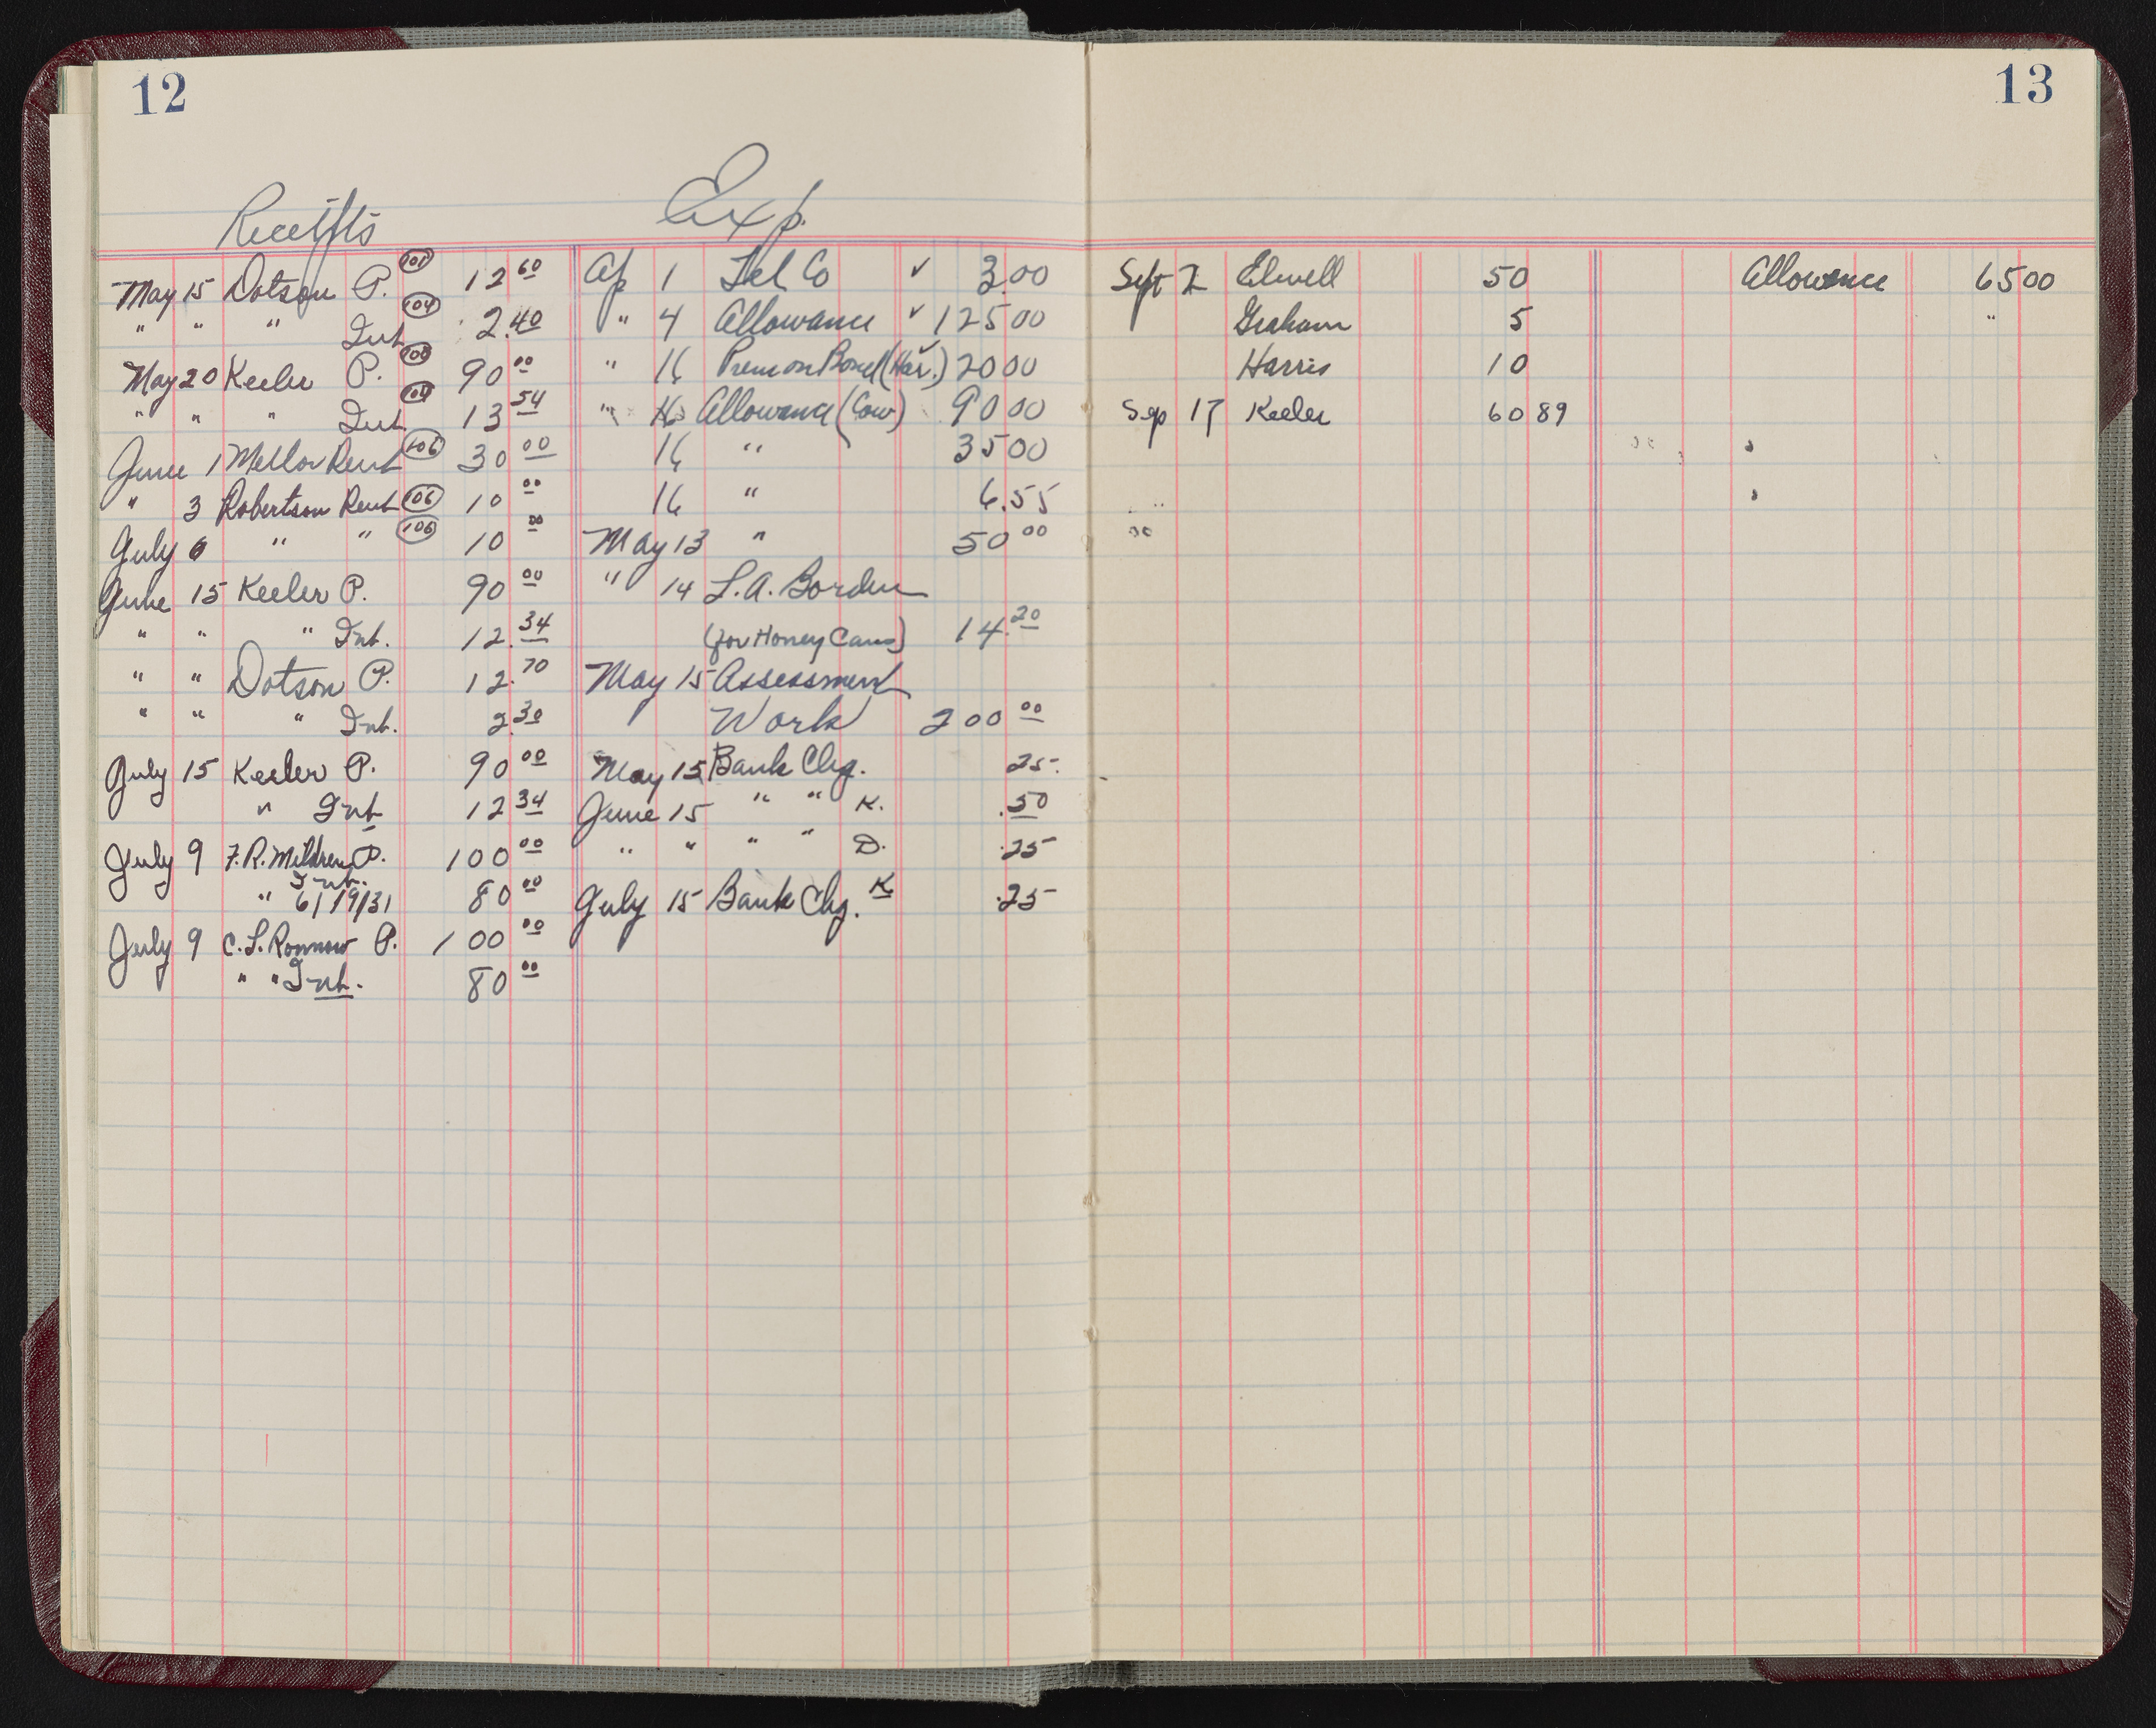 12
Receipts
May 15 Dotson P. 101 12 60
" " " Int. 104 2.40
May 20 Keeler P. 90 00
" " " Int. 104 13 54
June 1 Mellor Rent 106 30 00
" 3 Robertson Rent 106 10 00
July 6 " " 106 10 00
June 15 Keeler P. 90 00
" " " Int. 12.34
" " Dotson P. 12.70
" " " Int. 2.30
July 15 Keeler P. 90 00
" Int 12 34
July 9 F.R. P. 100 00
Int.
" 6/19/31 80 00
July 9 C.L. Ronnow P. 100 00
" " Int. 80 00
Exp.
Ap 1 Tel Co ✓ 3.00
" 4 Allowance ✓ 125 00
" 16 Prem on Bond (Har.) ✓ 20 00
" 16 Allowance (Cow) 90 00
16 " 35 00
16 " 6.55
May 13 " 50 00
" 14 L.A. Borden
(for Honey Cans) 14.20
May 15 Assessment
Work 200 00
May 15 Bank Chg. .25
June 15 " " K. .50
" " " " D. .25
July 15 Bank Chg. K .25
13
Sept 2 Elwell 50
Graham 5
Harris 10
Sep 17 Keeler 60 89
Allowance 65 00
"